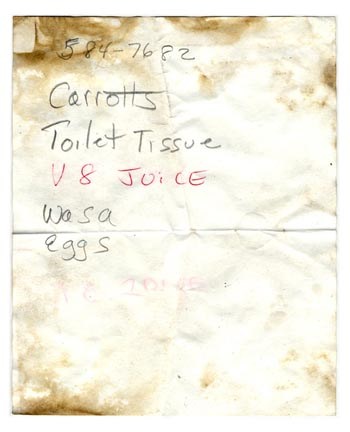 584-7682
Carrotts
Toilet Tissue
V8 JUiCE
Wasa
eggs